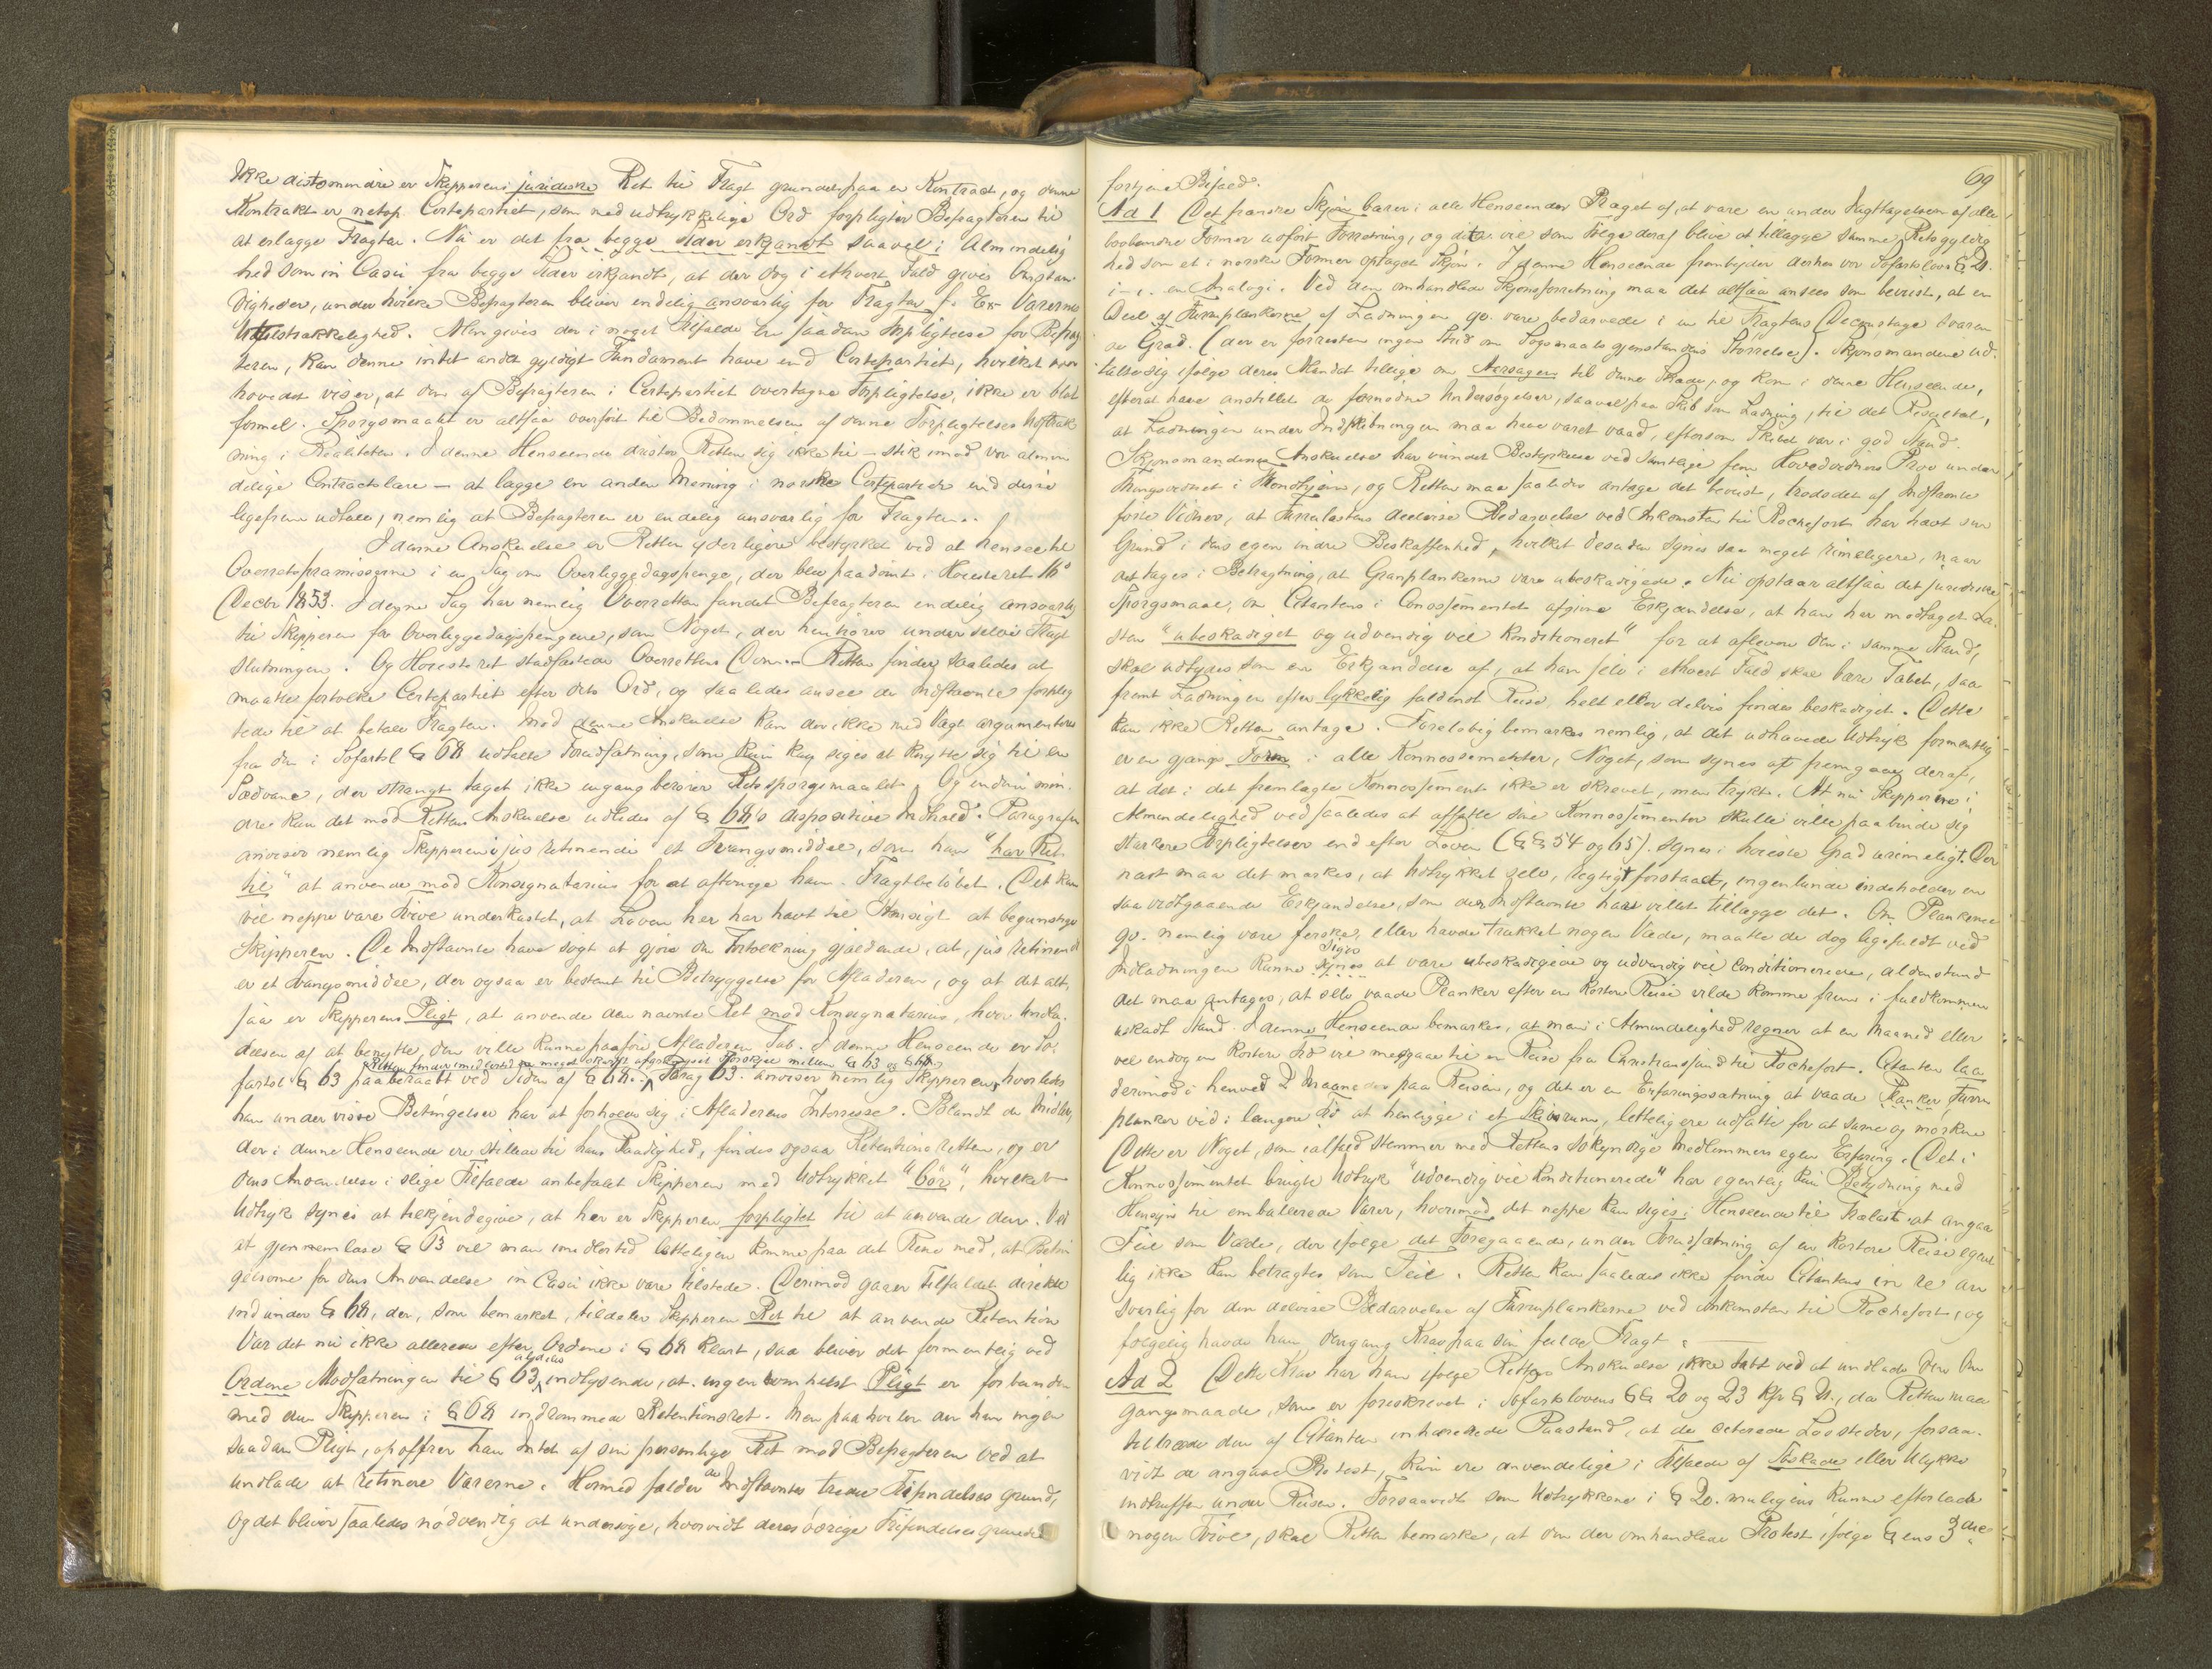 Ikke distomindre er Skipperens juridiske Ret til Fragt grundet paa en Kontract, og denne
Kontrakt er netop Certepartiet, som med udtrykkelige Ord forpligter Befragteren til
at erlægge Fragten. Nu er det fra begge Sider erkjendt saavel i Almindelig
hed som in Casu fra begge Sider erkjendt, at der dog i ethvert Fald gives Omstæn
digheder, under hvilke Befragteren bliver endelig ansvarlig for Fragten f. Ex. Varernes
Utilstrækkelighed. Men gives der i noget Tilfælde en saadan Forpligtelse for Befrag
teren, kan denne intet andet gyldigt Fundament have end Certepartiet, hvilket over
hovedet viser, at den af Befragteren i Certepartiet overtagne Forpligtelse, ikke er blot
formel. Spørgsmaalet er altsaa overført til Bedømmelsen af denne Forpligtelses
ning i Realiteten. I denne Henseende drister Retten sig ikke til – stik imod vor almin
delige Contractslære – at lægge en anden Mening i norske Certepartier end disse
ligefrem udtale, nemlig at Befragteren er endelig ansvarlig for Fragten.
I denne Anskuelse er Retten yderligere bestyrket ved at hensee til
Overretspræmisserne i en Sag om Overliggedagspenge, der blev paadømt i Høiesteret 16de
Decbr 1853. I denne Sag har nemlig Overretten fundet Befragteren endelig ansvarlig
til Skipperen for Overliggedagspengene, som Noget, der henhører under selve Fragt
slutningen. Og Høiesteret stadfæstede Overrettens Dom. – Retten finder saaledes at
maatte fortolke Certepartiet efter dets Ord, og saaledes ansee de Indstævnte forplig
tede til at betale Fragten. Mod denne Anskuelse kan der ikke med Vægt argumenteres
fra den i Søfartsl § 68 udtalte Forudsætning, som kun kan siges at knytte sig til en
Sædvane, der strængt taget ikke engang berører Retsspørgsmaalet. Og endnu min
dre kan det mod Rettens Anskuelse udledes af § 68's dispositive Indhold. Paragrafen
anviser nemlig Skipperen i jus retinendi et Tvangsmiddel, som han "har Ret
til" at anvende mod Konsignatarius for at aftvinge ham Fragtbeløbet. Det kan
vel neppe være Tvivl underkastet, at Loven her har havt til Hensigt at begunstige
Skipperen. De Indstævnte have søgt at gjøre den Fortolkning gjældende, at jus retinendi
er et Tvangsmiddel, der ogsaa er bestemt til Betryggelse for Afladeren, og at det alt,
saa er Skipperens Pligt, at anvende den nævnte Ret mod Konsignatarius, hvor Undla
delsen af at benytte den ville kunne paaføre Afladeren Tab. I denne Henseende er Sø
Retten finder imidlertid en meget skarpt afgrændset Forskjel mellem § 63 og § 68.
fartsl § 63 paaberaabt ved Siden af § 68. Parag 63. anviser nemlig Skipperen, hvorledes
han under visse Betingelser har at forholde sig i Afladerens Interesse. Blandt de Midler,
der i denne Henseende ere stillede til hans Raadighed, findes ogsaa Retentionsretten, og er
dens Anvendelse i slige Tilfælde anbefalet Skipperen med Udtrykket "bør", hvilket
Udtryk synes at tilkjendegive, at her er Skipperen forpligtet til at anvende den. Ved
at gjennemlæse § 63 vil man imidlertid letteligen komme paa det Rene med, at Betin
gelserne for dens Anvendelse in Casu ikke vare tilstede. Derimod gaaer Tilfældet direkte
ind under § 68, der, som bemærket, tildeler Skipperen Ret til at anvende Retention
Var det nu ikke allerede efter Ordene i § 68 klart, saa bliver det formentlig ved
Ordene Modsætningen til § 63 indlysende, at ingensomhelst Pligt er forbunden
med den Skipperen i § 68 indrømmede Retentionsret. Men paahviler der ham ingen
saadan Pligt, opoffrer han Intet af sin personlige Ret mod Befragteren ved at
undlade at retinere Varerne. Hermed falder de Indstævntes tredie Frifindelses grund,
og det bliver saaledes nødvendig at undersøge, hvorvidt deres øvrige Frifindelsesgrunde
69
fortjene Bifald.
Ad 1 Det franske Skjøn bærer i alle Henseender Præget af, at være en under Iagttagelsen af alle
lovbundne Former udført Forretning, og dette vil som Følge deraf blive at tillægge samme Retsgyldig
hed som et i norske Former optaget Skjøn. I denne Henseende frembyder derhos vor Søfartslovs § 21.
i – c. en Analogi. Ved den omhandlede Skjønsforretning maa det altsaa ansees som bevist, at en
Deel af Furuplankerne af Ladningen qv. vare bedærvede i en til Fragtens Decourtage svaren
de Grad. (der er forresten ingen Strid om Søgsmaals gjenstandens Størrelse). Skjønsmændene ud
talte sig ifølge deres Mandat tillige om Aarsagen til denne Skade, og kom i denne Henseende,
efterat have anstillet de fornødne Undersøgelser, saavel paa Skib som Ladning, til det Resultat,
at Ladningen under Indskibningen maa have været vaad, eftersom Skibet var i god Stand.
Skjønsmændenes Anskuelse har vundet Bestyrkelse ved samtlige fem Hovedvidners Prov under
Thingsvidnet i Trondhjem, og Retten maa saaledes antage det bevist, trods det af Indstævnte
førte Vidner, at Furulastens deelvise Bedærvelse ved Ankomsten til Rochefort har havt sin
Grund i dens egen indre Beskaffenhed, hvilket desuden synes saa meget rimeligere, naar
det tages i Betragtning, at Granplankerne vare ubeskadigede. Nu opstaar altsaa det juridiske
Spørgsmaal, om Citantens i Conossementet afgivne Erkjendelse, at han har modtaget La
sten "ubeskadiget og udvendig vel konditioneret" for at aflevere den i samme Stand,
skal udtydes som en Erkjendelse af, at han selv i ethvert Fald skal bære Tabet, saa
fremt Ladningen efter lykkelig fuldendt Reise, helt eller delvis findes beskadiget. Dette
kan ikke Retten antage. Foreløbig bemærkes nemlig, at det udhævede Udtryk formentlig
er en gjængs Form i alle Konnossementer, Noget, som synes at fremgaae deraf,
at det i det fremlagte Konnossement ikke er skrevet, men trykt. At nu Skipperne i
Almindelighed ved saaledes at affatte sine Konnossementer skulle ville paabinde sig
stærkere Forpligtelser end efter Loven (§§ 54 og 65). synes i høieste Grad urimeligt. Der
næst maa det mærkes, at Udtrykket selv, rigtigt forstaaet, ingenlunde indeholder en
saa vidtgaaende Erkjendelse, som de Indstævnte have villet tillægge det. Om Plankerne
qv. nemlig vare ferske, eller havde trukket nogen Væde, maatte de dog ligefuldt ved
siges
Indladningen kunne synes at være ubeskadigede og udvendig vel conditionerede, aldenstund
det maa antages, at selv vaade Planker efter en kortere Reise vilde komme frem i fuldkommen
uskadt Stand. I denne Henseende bemærkes, at man i Almindelighed regner at en Maaned eller
vel endog en kortere Tid vil medgaae til en Reise fra Christianssund til Rochefort. Citanten laa
derimod i henved 2 Maaneder paa Reisen, og det er en Erfaringssætning at vaade Planker, Furu
planker ved i længere Tid at henligge i et Skibsrum, lettelig ere udsatte for at surne og morkne
Dette er Noget, som ialfald stemmer med Rettens søkyndige Medlemmers egen Erfaring. Det i
Konnossementet brugte Udtryk "udvendig vel konditionerede" har egentlig kun Betydning med
Hensyn til emballerede Varer, hvorimod det neppe kan siges i Henseende til Trælast at angaa
Feil som Væde, der ifølge det Foregaaende, under Forudsætning af en kortere Reise egent
lig ikke kan betragtes som Feil. Retten kan saaledes ikke finde Citanten in re an
svarlig for den delvise Bedærvelse af Furuplankerne ved Ankomsten til Rochefort, og
følgelig havde han dengang Krav paa sin fulde Fragt.
Ad 2 Dette Krav har han ifølge Rettens Anskuelse ikke tabt ved at undlade den Frem
gangsmaade, som er foreskrevet i Søfartslovens §§ 20 og 23 kfr § 21., da Retten maa
tiltræde den af Citanten urgerede Paastand, at de citerede Lovsteder, forsaa
vidt de angaae Protest, kun ere anvendelige i Tilfælde af Søskade eller Ulykke
indtruffen under Reisen. Forsaavidt som Udtrykkene i § 20. muligens kunne efterlade
nogen Tvivl, skal Retten bemærke, at den der omhandlede Protest ifølge §ens 3die